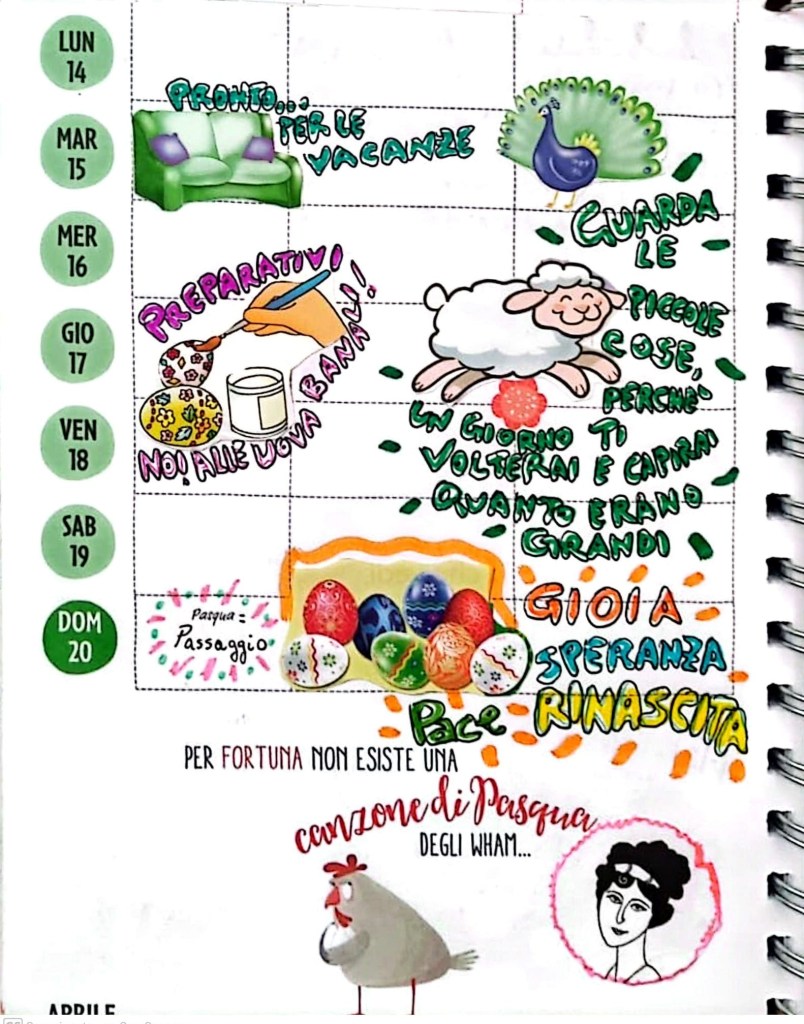 LUN
14
MAR
15
MER
16
GIO
17
VEN
18
SAB
19
DOM
20
PRONTO...
PER LE
VACANZE
GUARDA
LE
PICCOLE
COSE,
PERCHE'
UN GIORNO TI
VOLTERAI E CAPIRAI
QUANTO ERANO
GRANDI
PREPARATIVI
NO! ALLE UOVA BANALI!
Pasqua =
Passaggio
GIOIA
SPERANZA
RINASCITA
Pace
PER FORTUNA NON ESISTE UNA
canzone di Pasqua
DEGLI WHAM...
APRILE